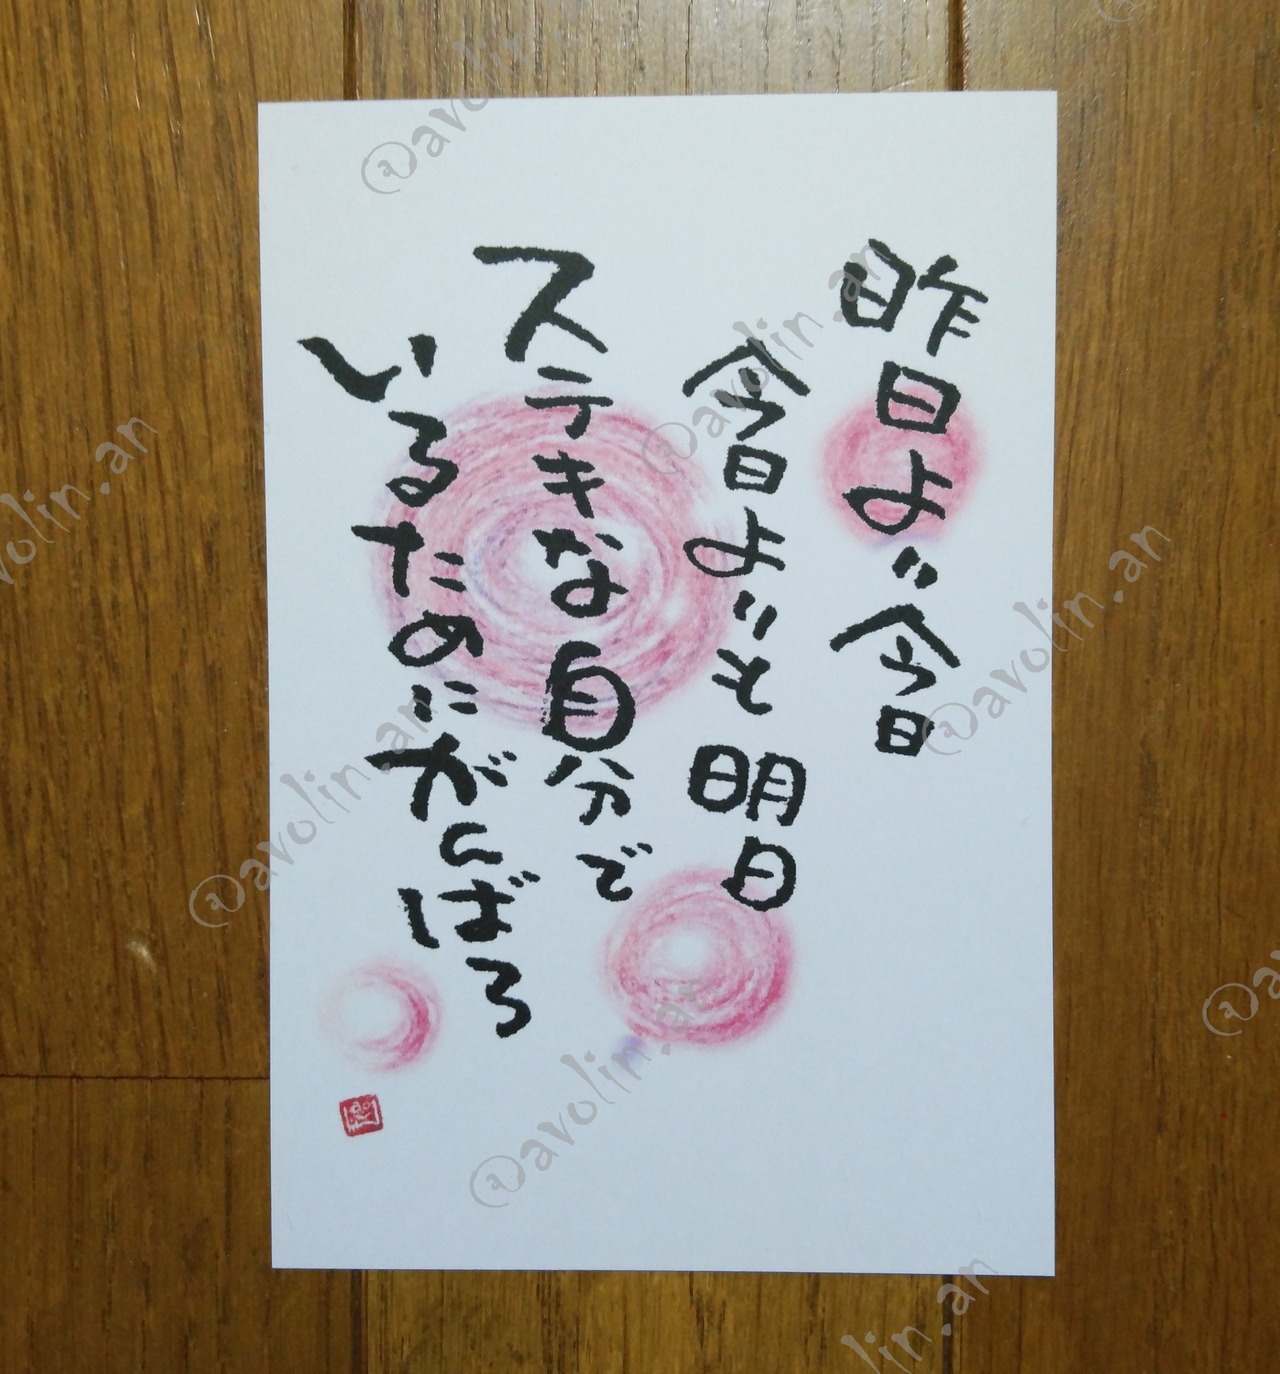 昨日より今日
今日よりも明日
ステキな自分で
いるためにがんばろう
@avolin.an
@avolin.an
@avolin.an
@avolin.an
@avolin.an